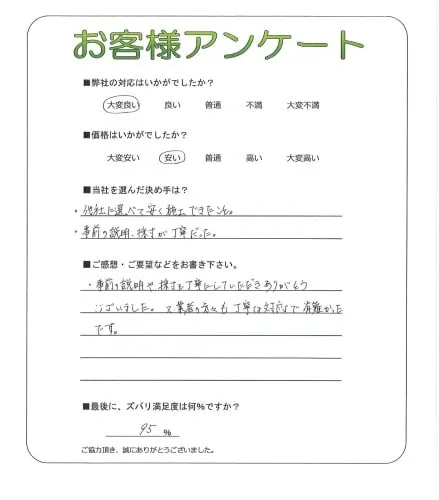 お客様アンケート
■弊社の対応はいかがでしたか？
大変良い 良い 普通 不満 大変不満
■価格はいかがでしたか？
大変安い 安い 普通 高い 大変高い
■当社を選んだ決め手は？
・他社に選べて安く施工できたこと。
・事前の説明、採寸が丁寧だった。
■ご感想・ご要望などをお書き下さい。
・事前の説明や採寸も丁寧にしていただきありがとう
ございました。又業者の方々も丁寧な対応で有難かった
です。
■最後に、ズバリ満足度は何％ですか？
95 ％
ご協力頂き、誠にありがとうございました。